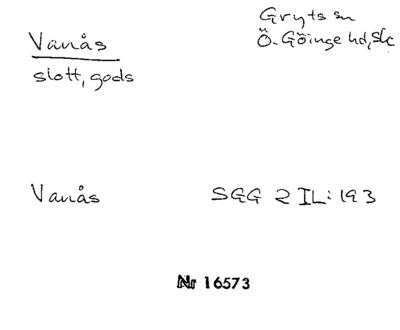 Vanås
slott, gods
Gryts sn
Ö. Göinge hd, Sk
Vanås SGG 2 IL: 193
Nr 16573